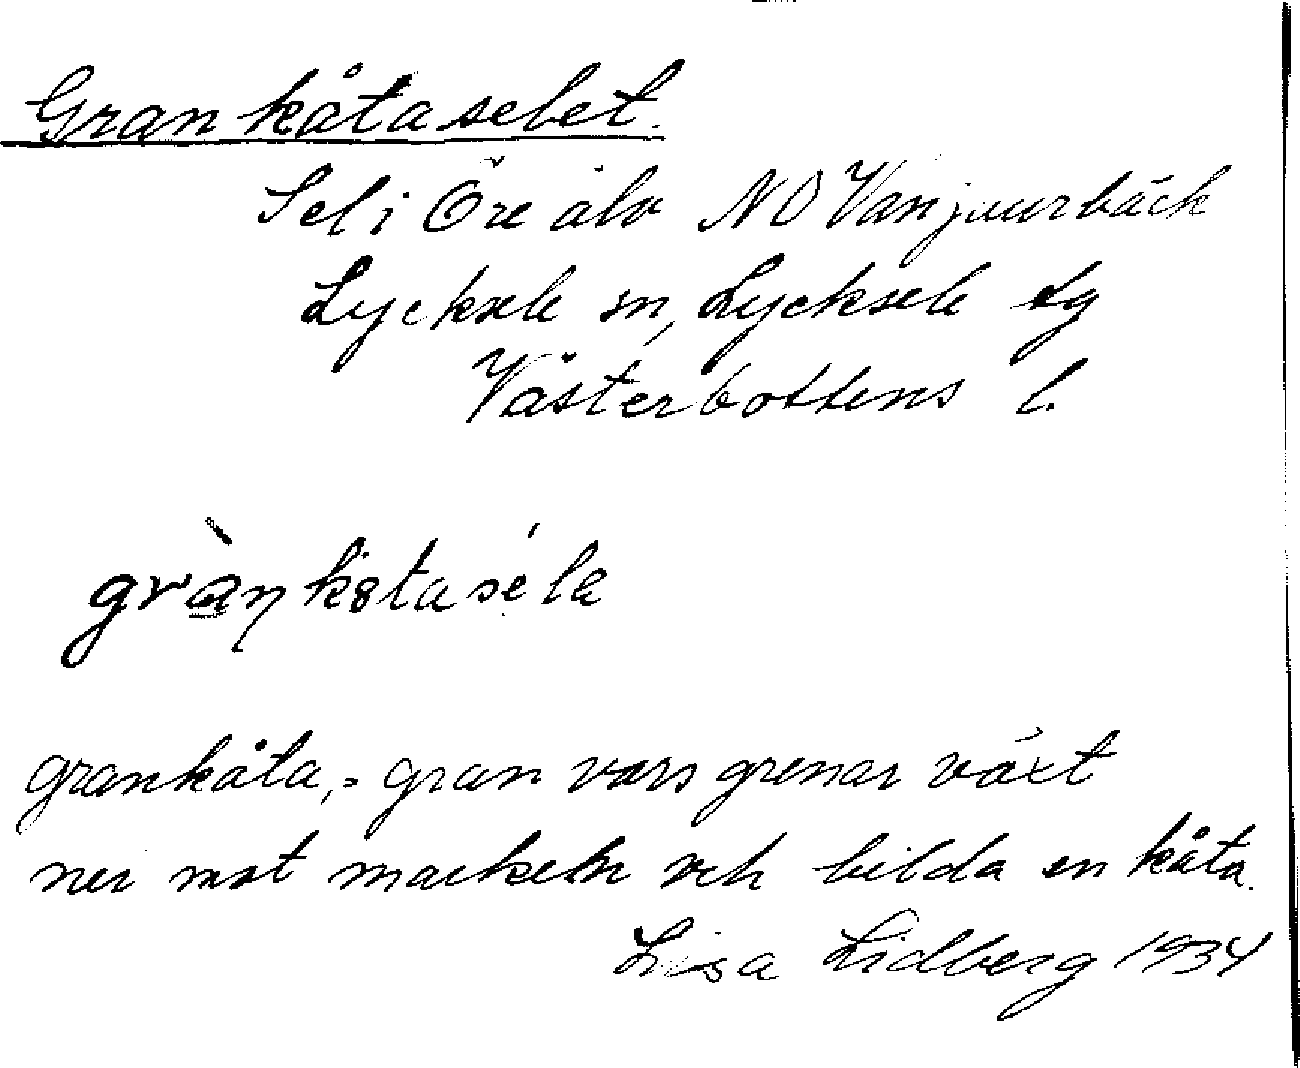 Grankåtaselet.
Sel i Öre älv NO Vanjaurbäck
Lycksele sn, Lycksele lg
Västerbottens l.
gràŋkåtasé la
grankåta, = gran vars grenar växt
ner mot marken och bilda en kåta.
Lisa Lidberg 1934